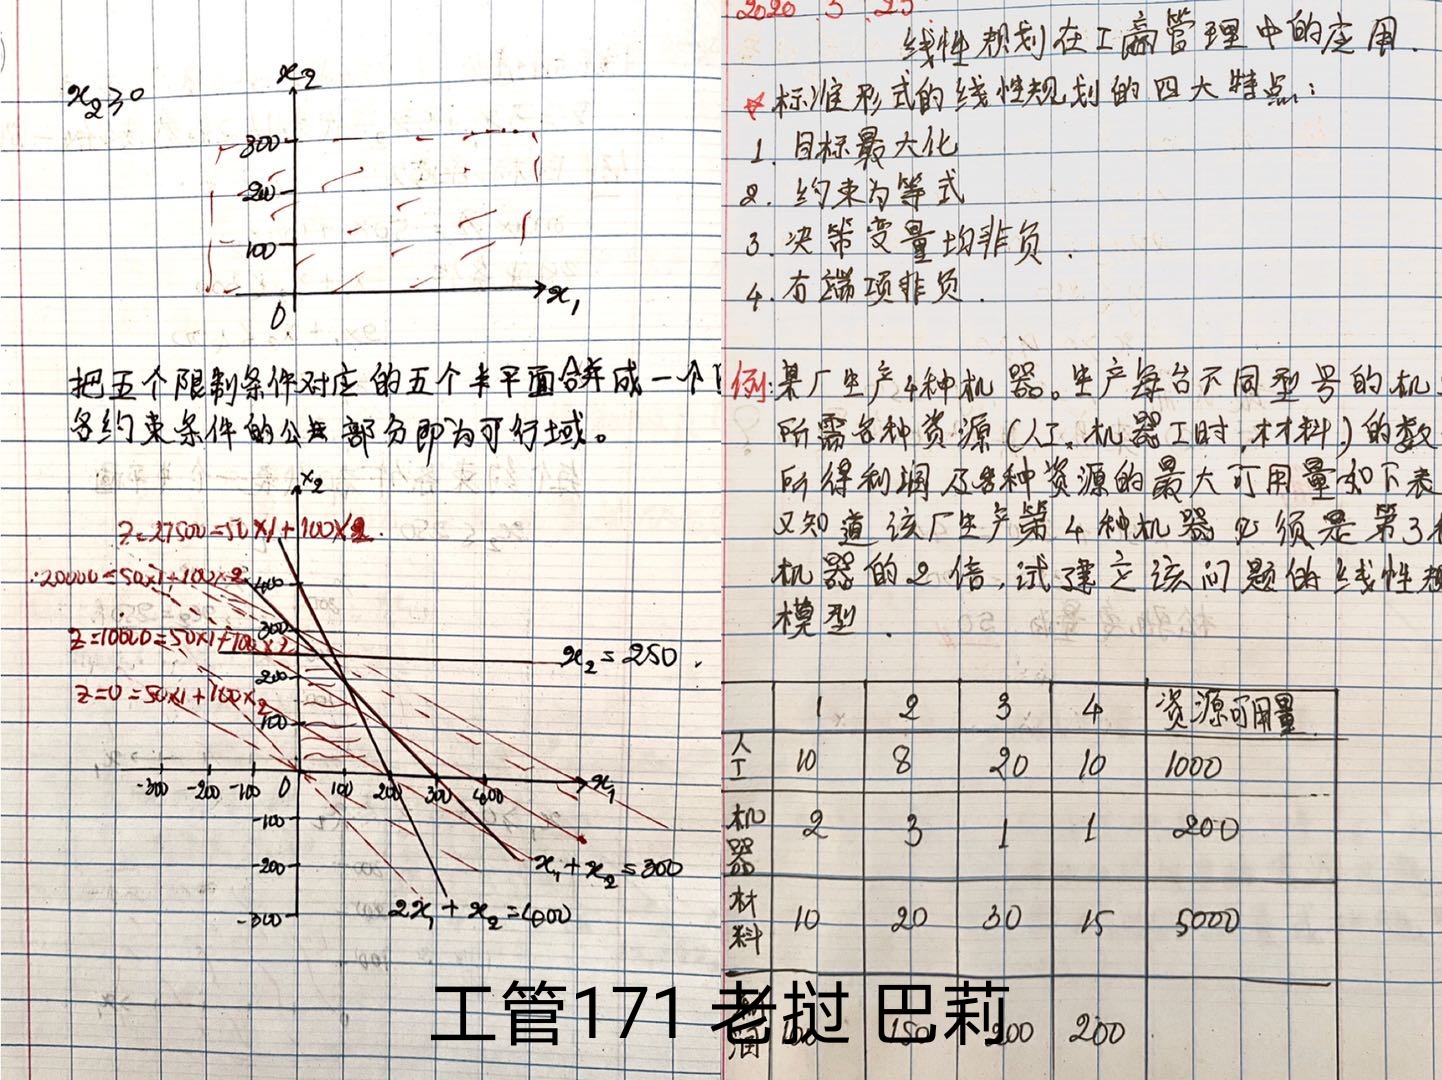 x₂≥0
x₂
300
200
100
0
x₁
把五个限制条件对应的五个半平面合并成一个
各约束条件的公共部分即为可行域。
x₂
Z=27500=50x1+100x2.
20000=50x1+100x2
400
300
Z=10000=50x1+100x2
x₂=250.
200
Z=0=50x1+100x2
100
-300 -200 -100 0 100 200 300 400 x₁
-100
-200
x₁+x₂=300
-300
2x₁+x₂=400
2020.3.25.
线性规划在工商管理中的应用.
☆标准形式的线性规划的四大特点:
1. 目标最大化
2. 约束为等式
3. 决策变量均非负.
4. 右端项非负.
例:某厂生产4种机器。生产每台不同型号的机
所需各种资源(人工、机器工时,材料)的数
所得利润及各种资源的最大可用量如下表
又知道该厂生产第4种机器必须是第3
机器的2倍,试建立该问题的线性规
模型.
1 2 3 4 资源可用量
人工 10 8 20 10 1000
机器 2 3 1 1 200
材料 10 20 30 15 5000
润 150 200 200
工管171 老挝 巴莉